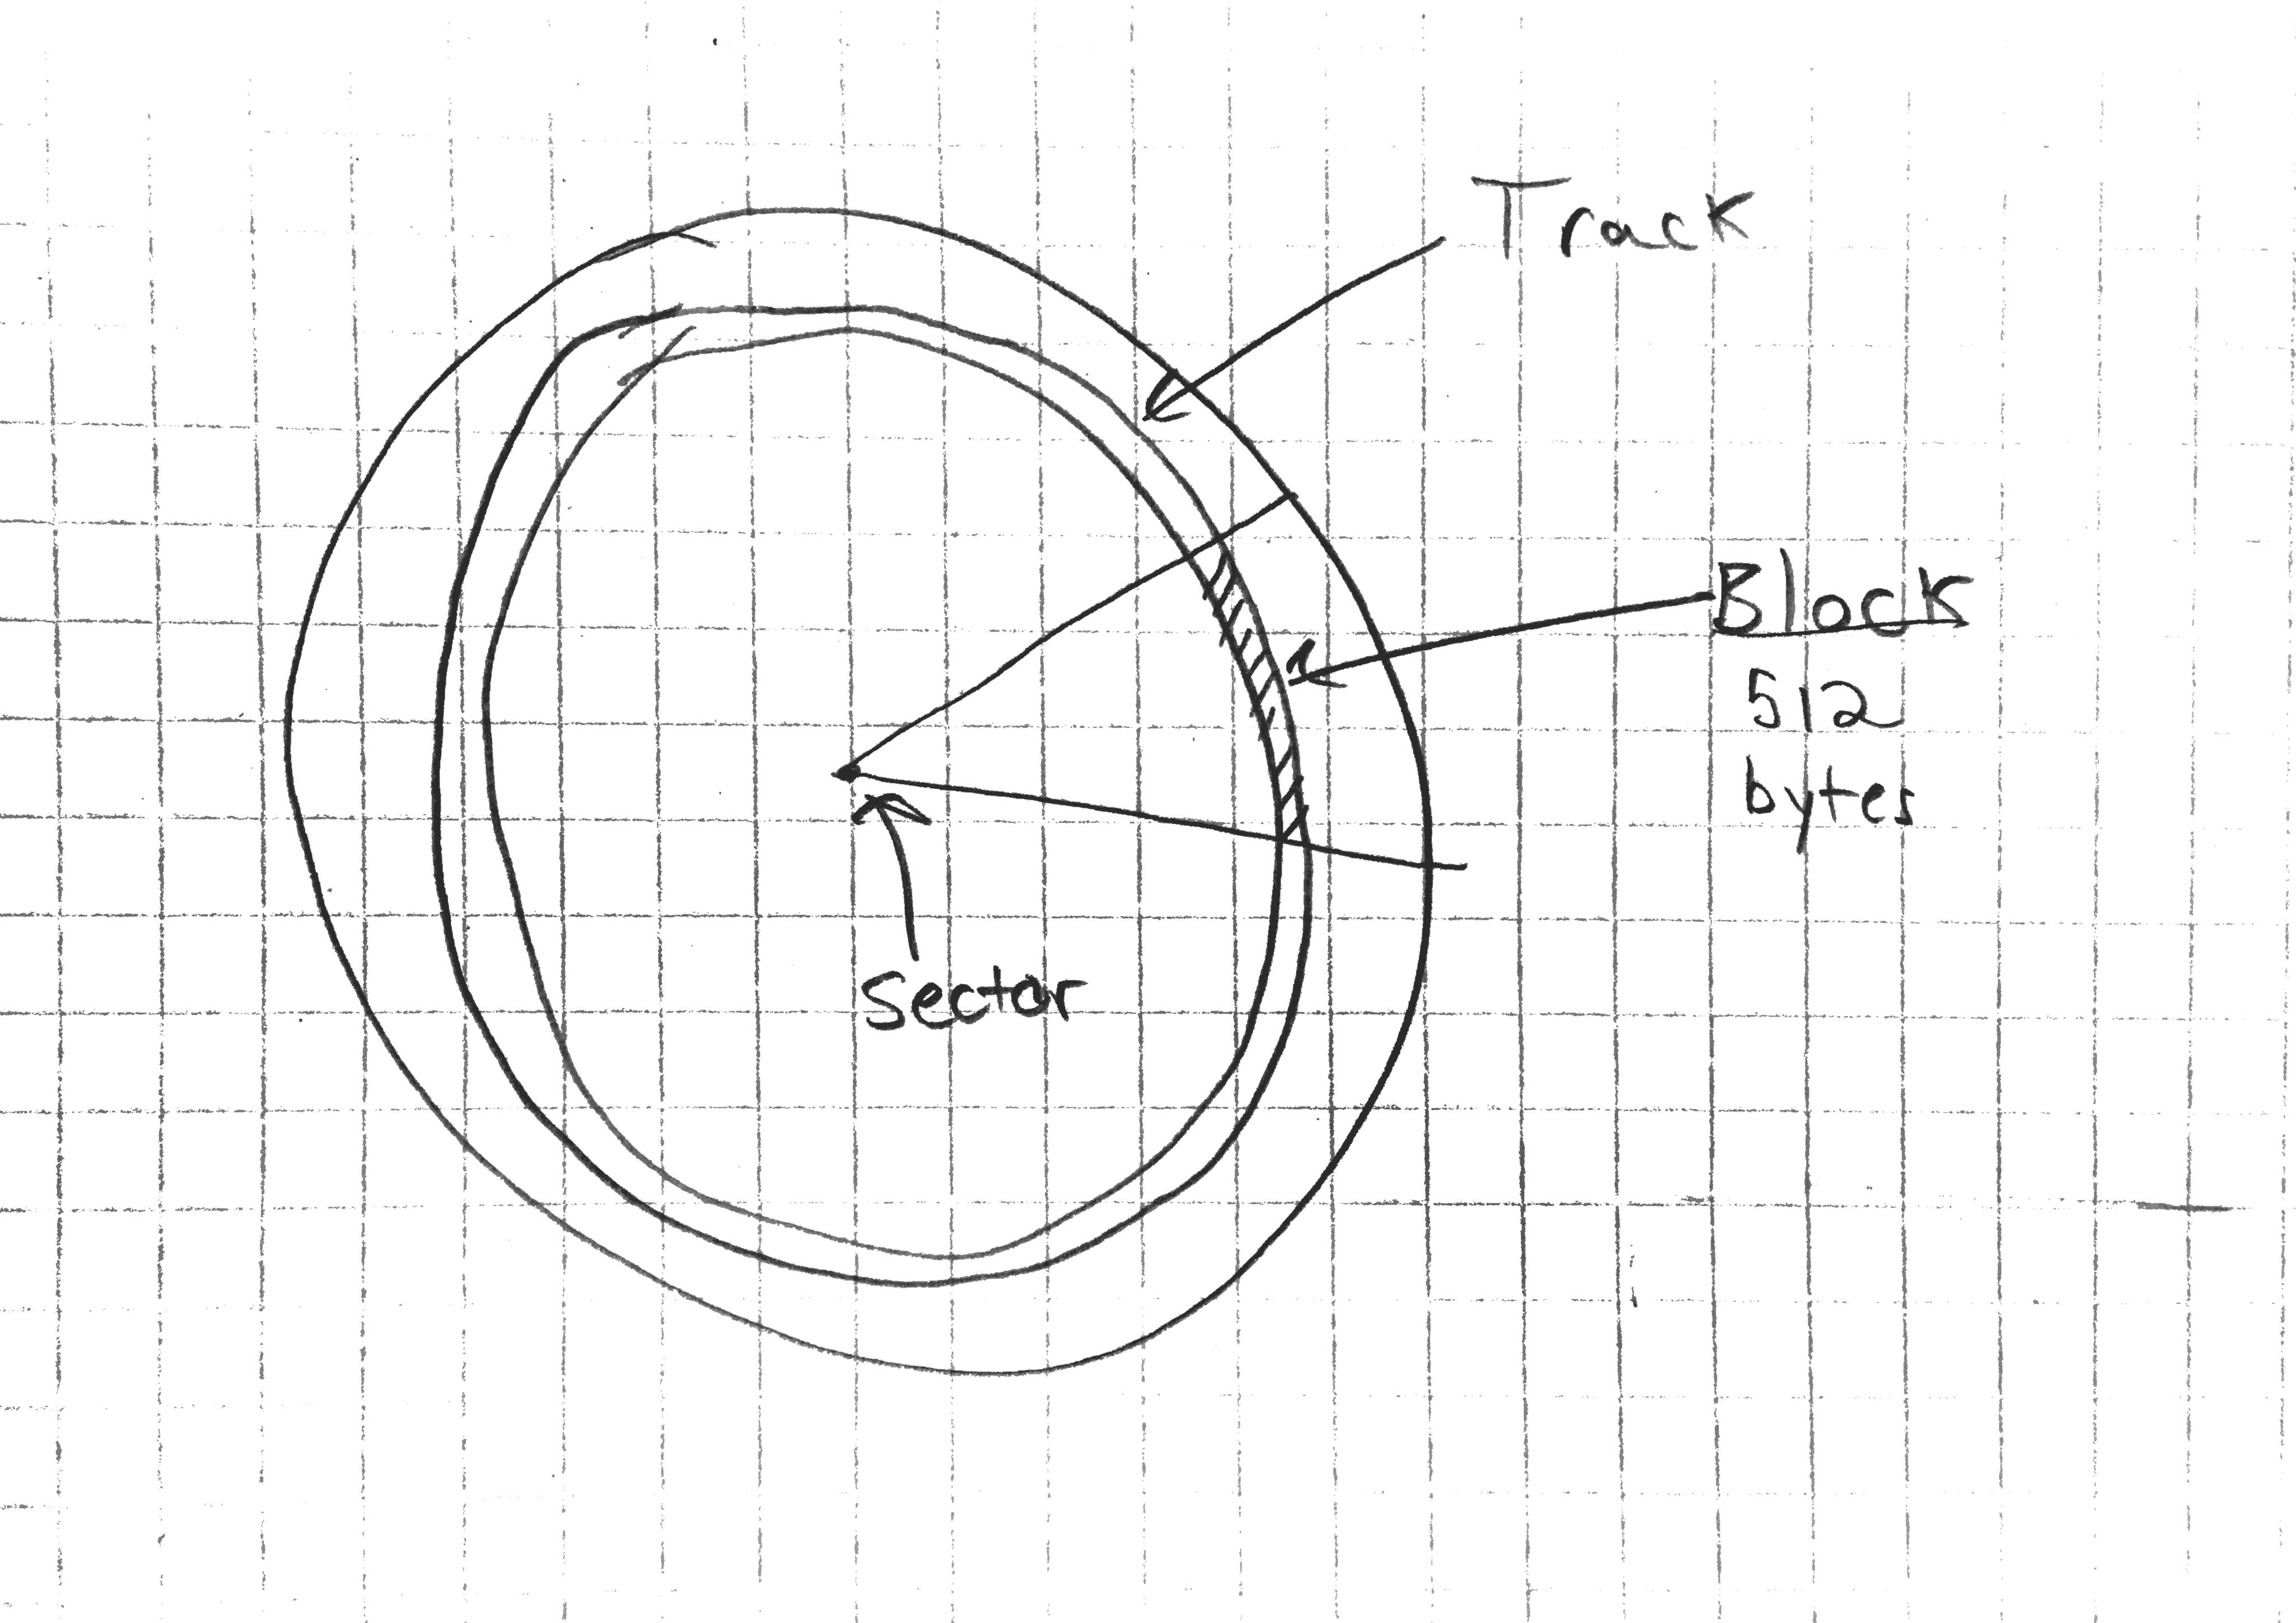 Track
Block
512
bytes
Sector